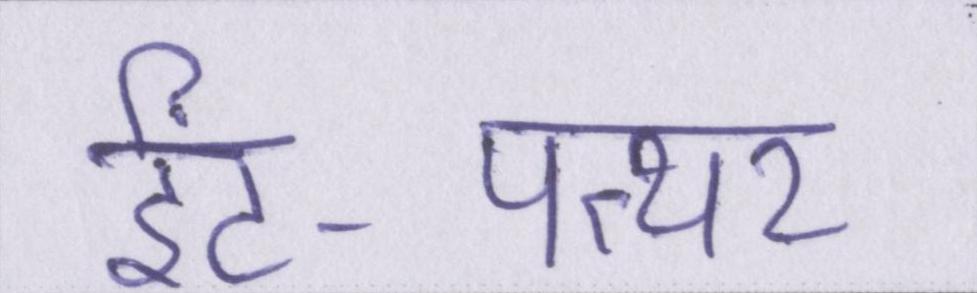 ईंट- पत्थर